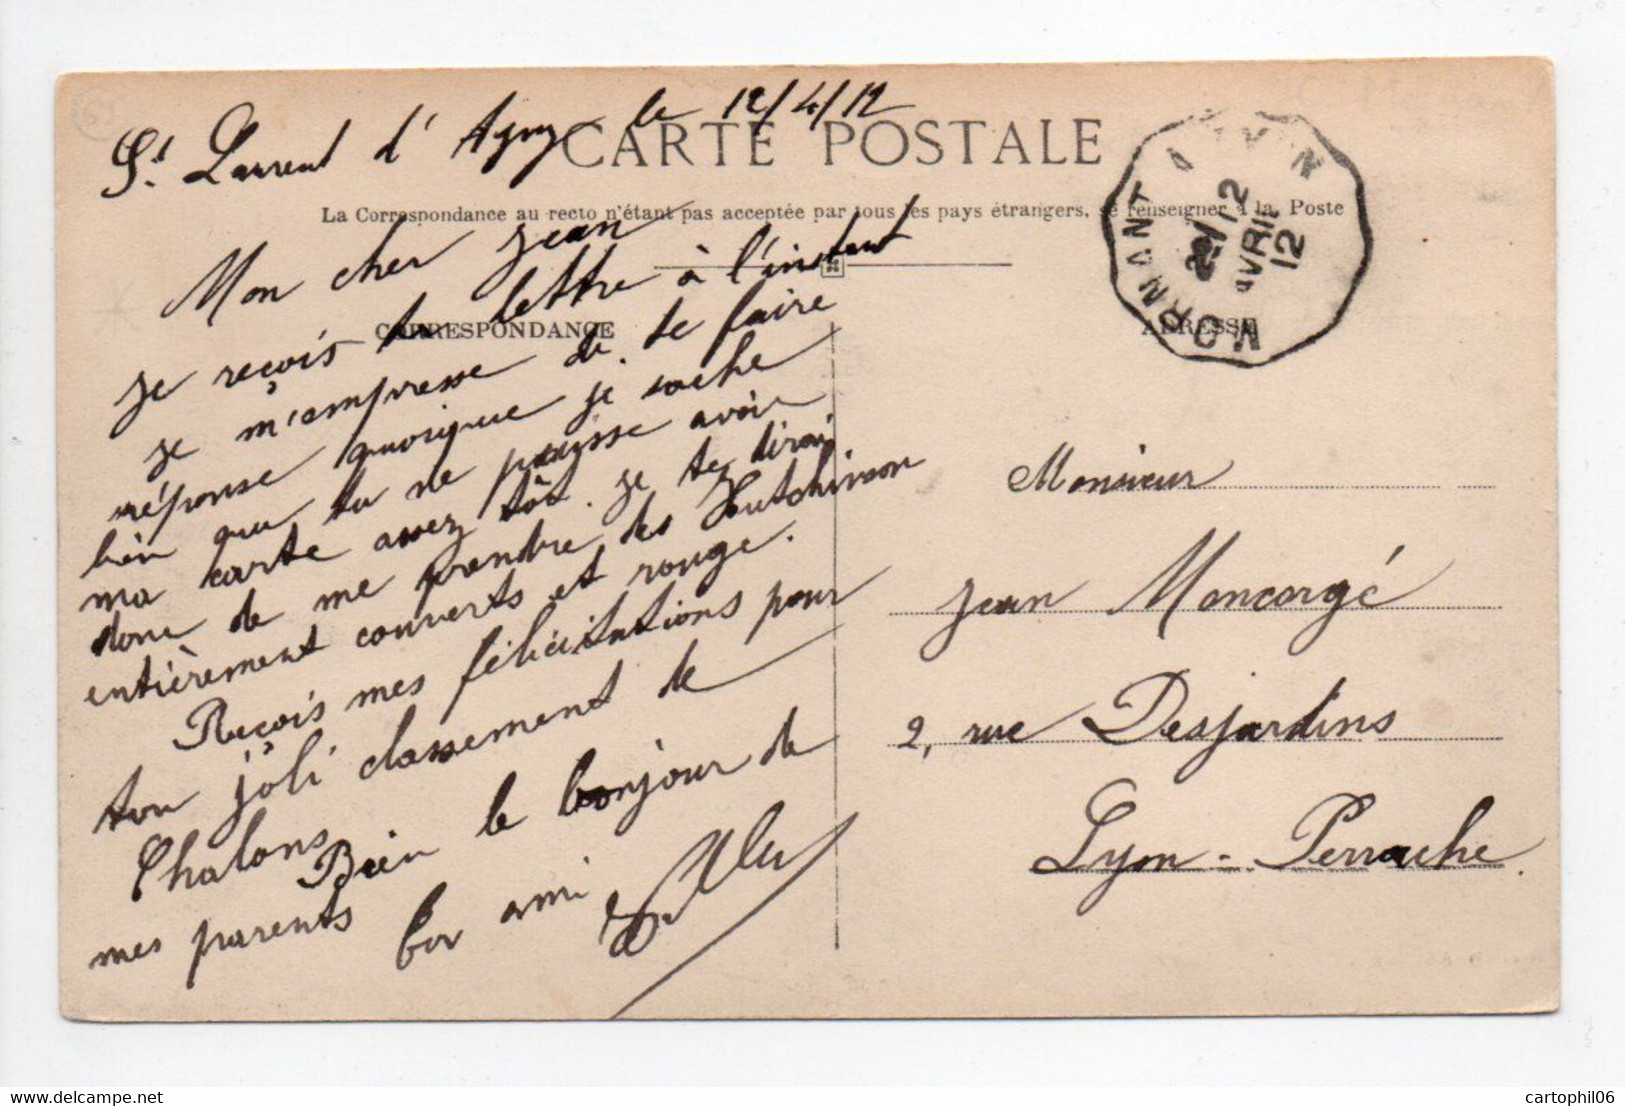 St Laurent d'Agny le 12/4/12
CARTE POSTALE
La Correspondance au recto n'étant pas acceptée par tous les pays étrangers, se renseigner à la Poste
CORRESPONDANCE
Mon cher Jean
Je reçois ta lettre à l'instant
Je m'empresse de te faire
réponse quoique je sache
bien que tu ne puisse avoir
ma carte assez tôt. Je te dirai
donc de me prendre des Hutchinson
entièrement couverts et rouge.
Reçois mes félicitations pour
ton joli classement de
Chalons
Bien le bonjour de
mes parents
ton ami
ADRESSE
MORNANT A LYON
2e/12
AVRIL
12
Monsieur
Jean Moncorgé
2, rue Desjardins
Lyon-Perrache.
69
cartophil06